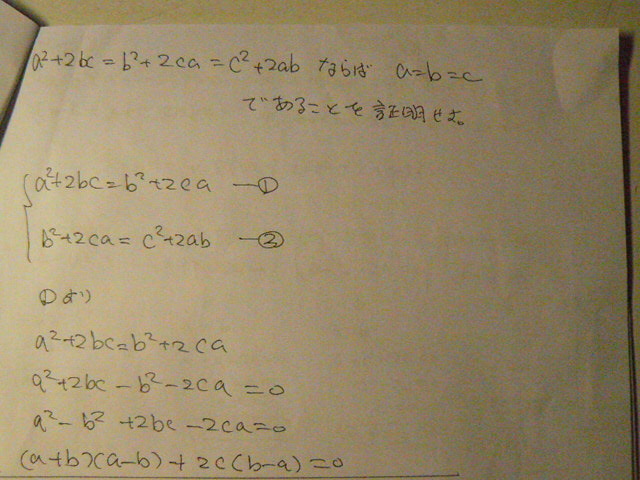 a²+2bc = b²+2ca = c²+2ab ならば a=b=c
であることを証明せよ。
a²+2bc=b²+2ca —①
b²+2ca = c²+2ab —②
①より
a²+2bc=b²+2ca
a²+2bc-b²-2ca=0
a²-b²+2bc-2ca=0
(a+b)(a-b)+2c(b-a)=0